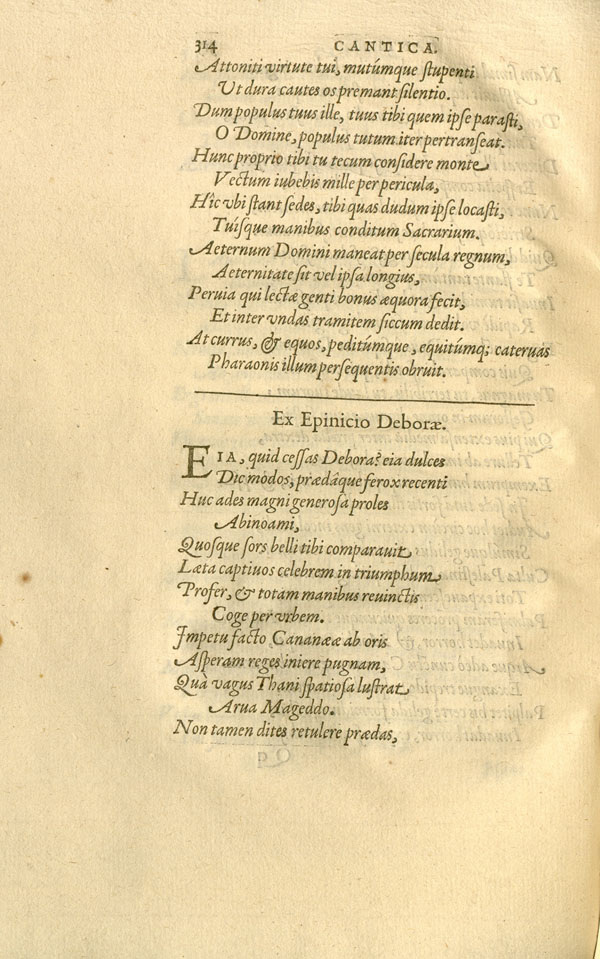 314 CANTICA.
Attoniti virtute tui, mutúmque stupenti
Vt dura cautes os premant silentio.
Dum populus tuus ille, tuus tibi quem ipse parasti,
O Domine, populus tutum iter pertranseat.
Hunc proprio tibi tu tecum considere monte
Vectum iubebis mille per pericula,
Hîc vbi stant sedes, tibi quas dudum ipse locasti,
Tuísque manibus conditum Sacrarium.
Aeternum Domini maneat per secula regnum,
Aeternitate sit vel ipsa longius,
Peruia qui lectæ genti bonus æquora fecit,
Et inter vndas tramitem siccum dedit.
At currus, & equos, peditúmque, equitúmq; cateruas
Pharaonis illum persequentis obruit.
Ex Epinicio Deboræ.
EIA, quid cessas Debora? eia dulces
Dic modos, prædâque ferox recenti
Huc ades magni generosa proles
Abinoami,
Quosque sors belli tibi comparauit
Læta captiuos celebrem in triumphum
Profer, & totam manibus reuinctis
Coge per vrbem.
Impetu facto Cananææ ab oris
Asperam reges iniere pugnam,
Quà vagus Thani spatiosa lustrat
Arua Mageddo.
Non tamen dites retulere prædas,